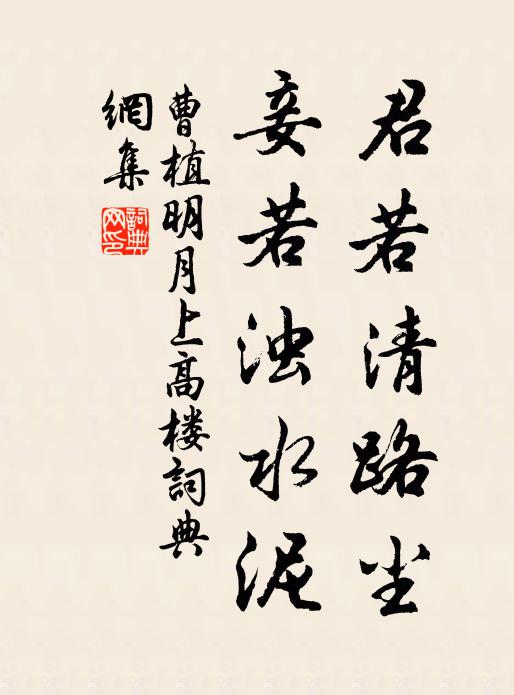 君若清路尘
妾若浊水泥
曹植明月上高楼詞典
網集
詞典
网印